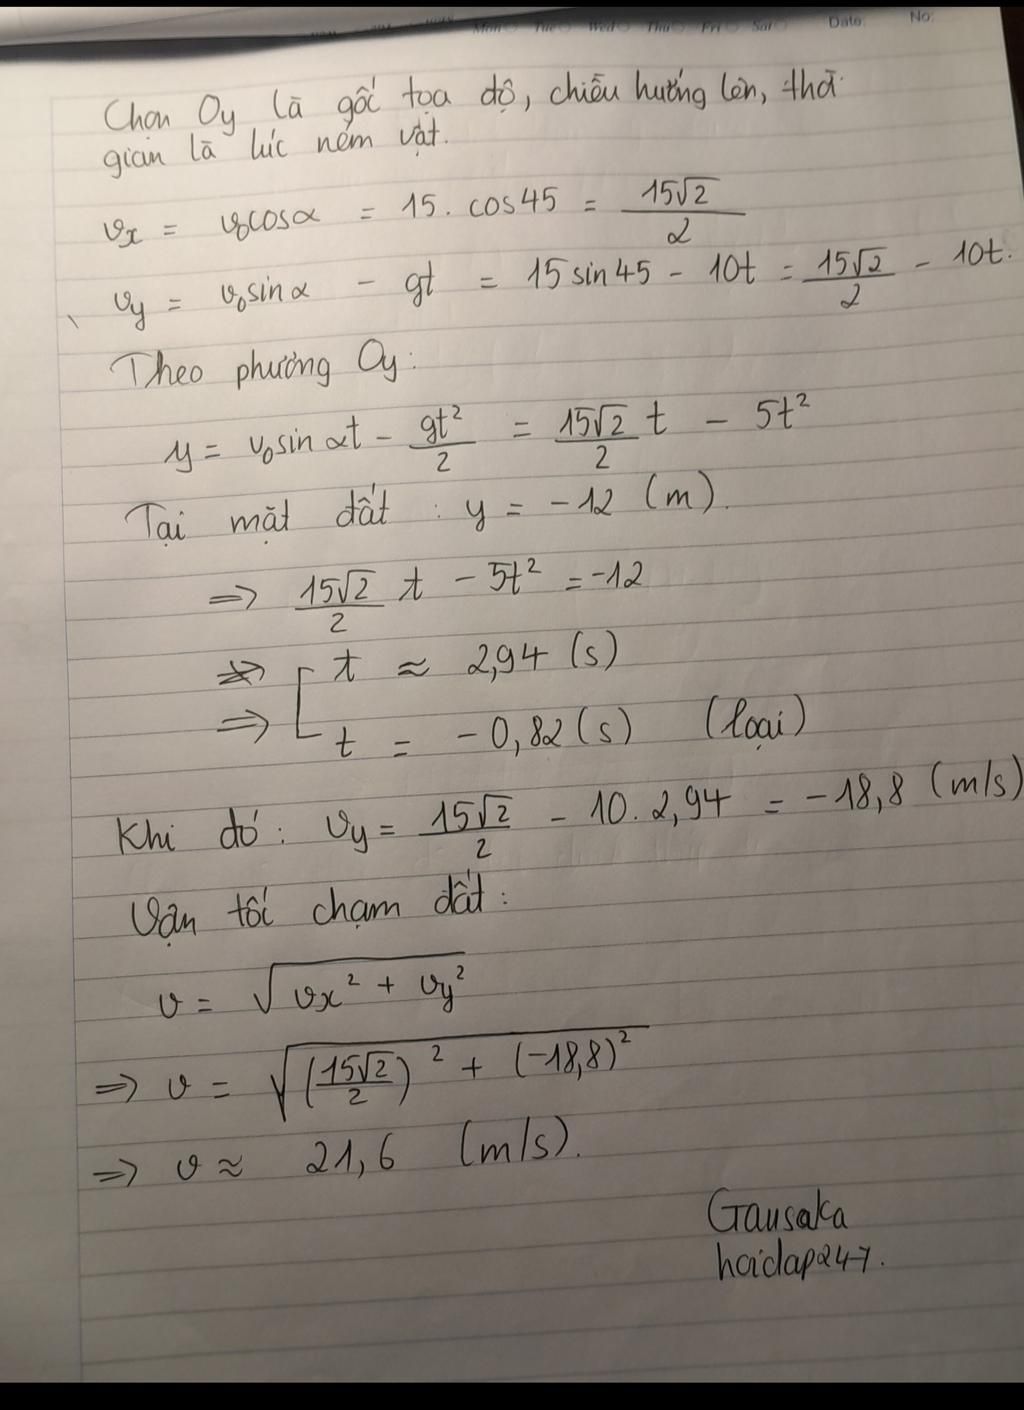 Mon Tue Wed Thu Fri Sat Date: No:
Chọn Oy là gốc tọa độ, chiều hướng lên, thời
gian là lúc ném vật.
vx = v₀cosα = 15. cos45 = 15√2/2
vy = v₀sinα - gt = 15sin45 - 10t = 15√2/2 - 10t.
Theo phương Oy:
y = v₀sinαt - gt²/2 = 15√2/2 t - 5t²
Tại mặt đất : y = -12 (m).
=> 15√2/2 t - 5t² = -12
[ t ≈ 2,94 (s)
=> t = -0,82 (s) (loại)
Khi đó: vy = 15√2/2 - 10. 2,94 = -18,8 (m/s)
Vận tốc chạm đất :
v = √(vx² + vy²)
=> v = √((15√2/2)² + (-18,8)²)
=> v ≈ 21,6 (m/s).
Gausaka
hoidap247.